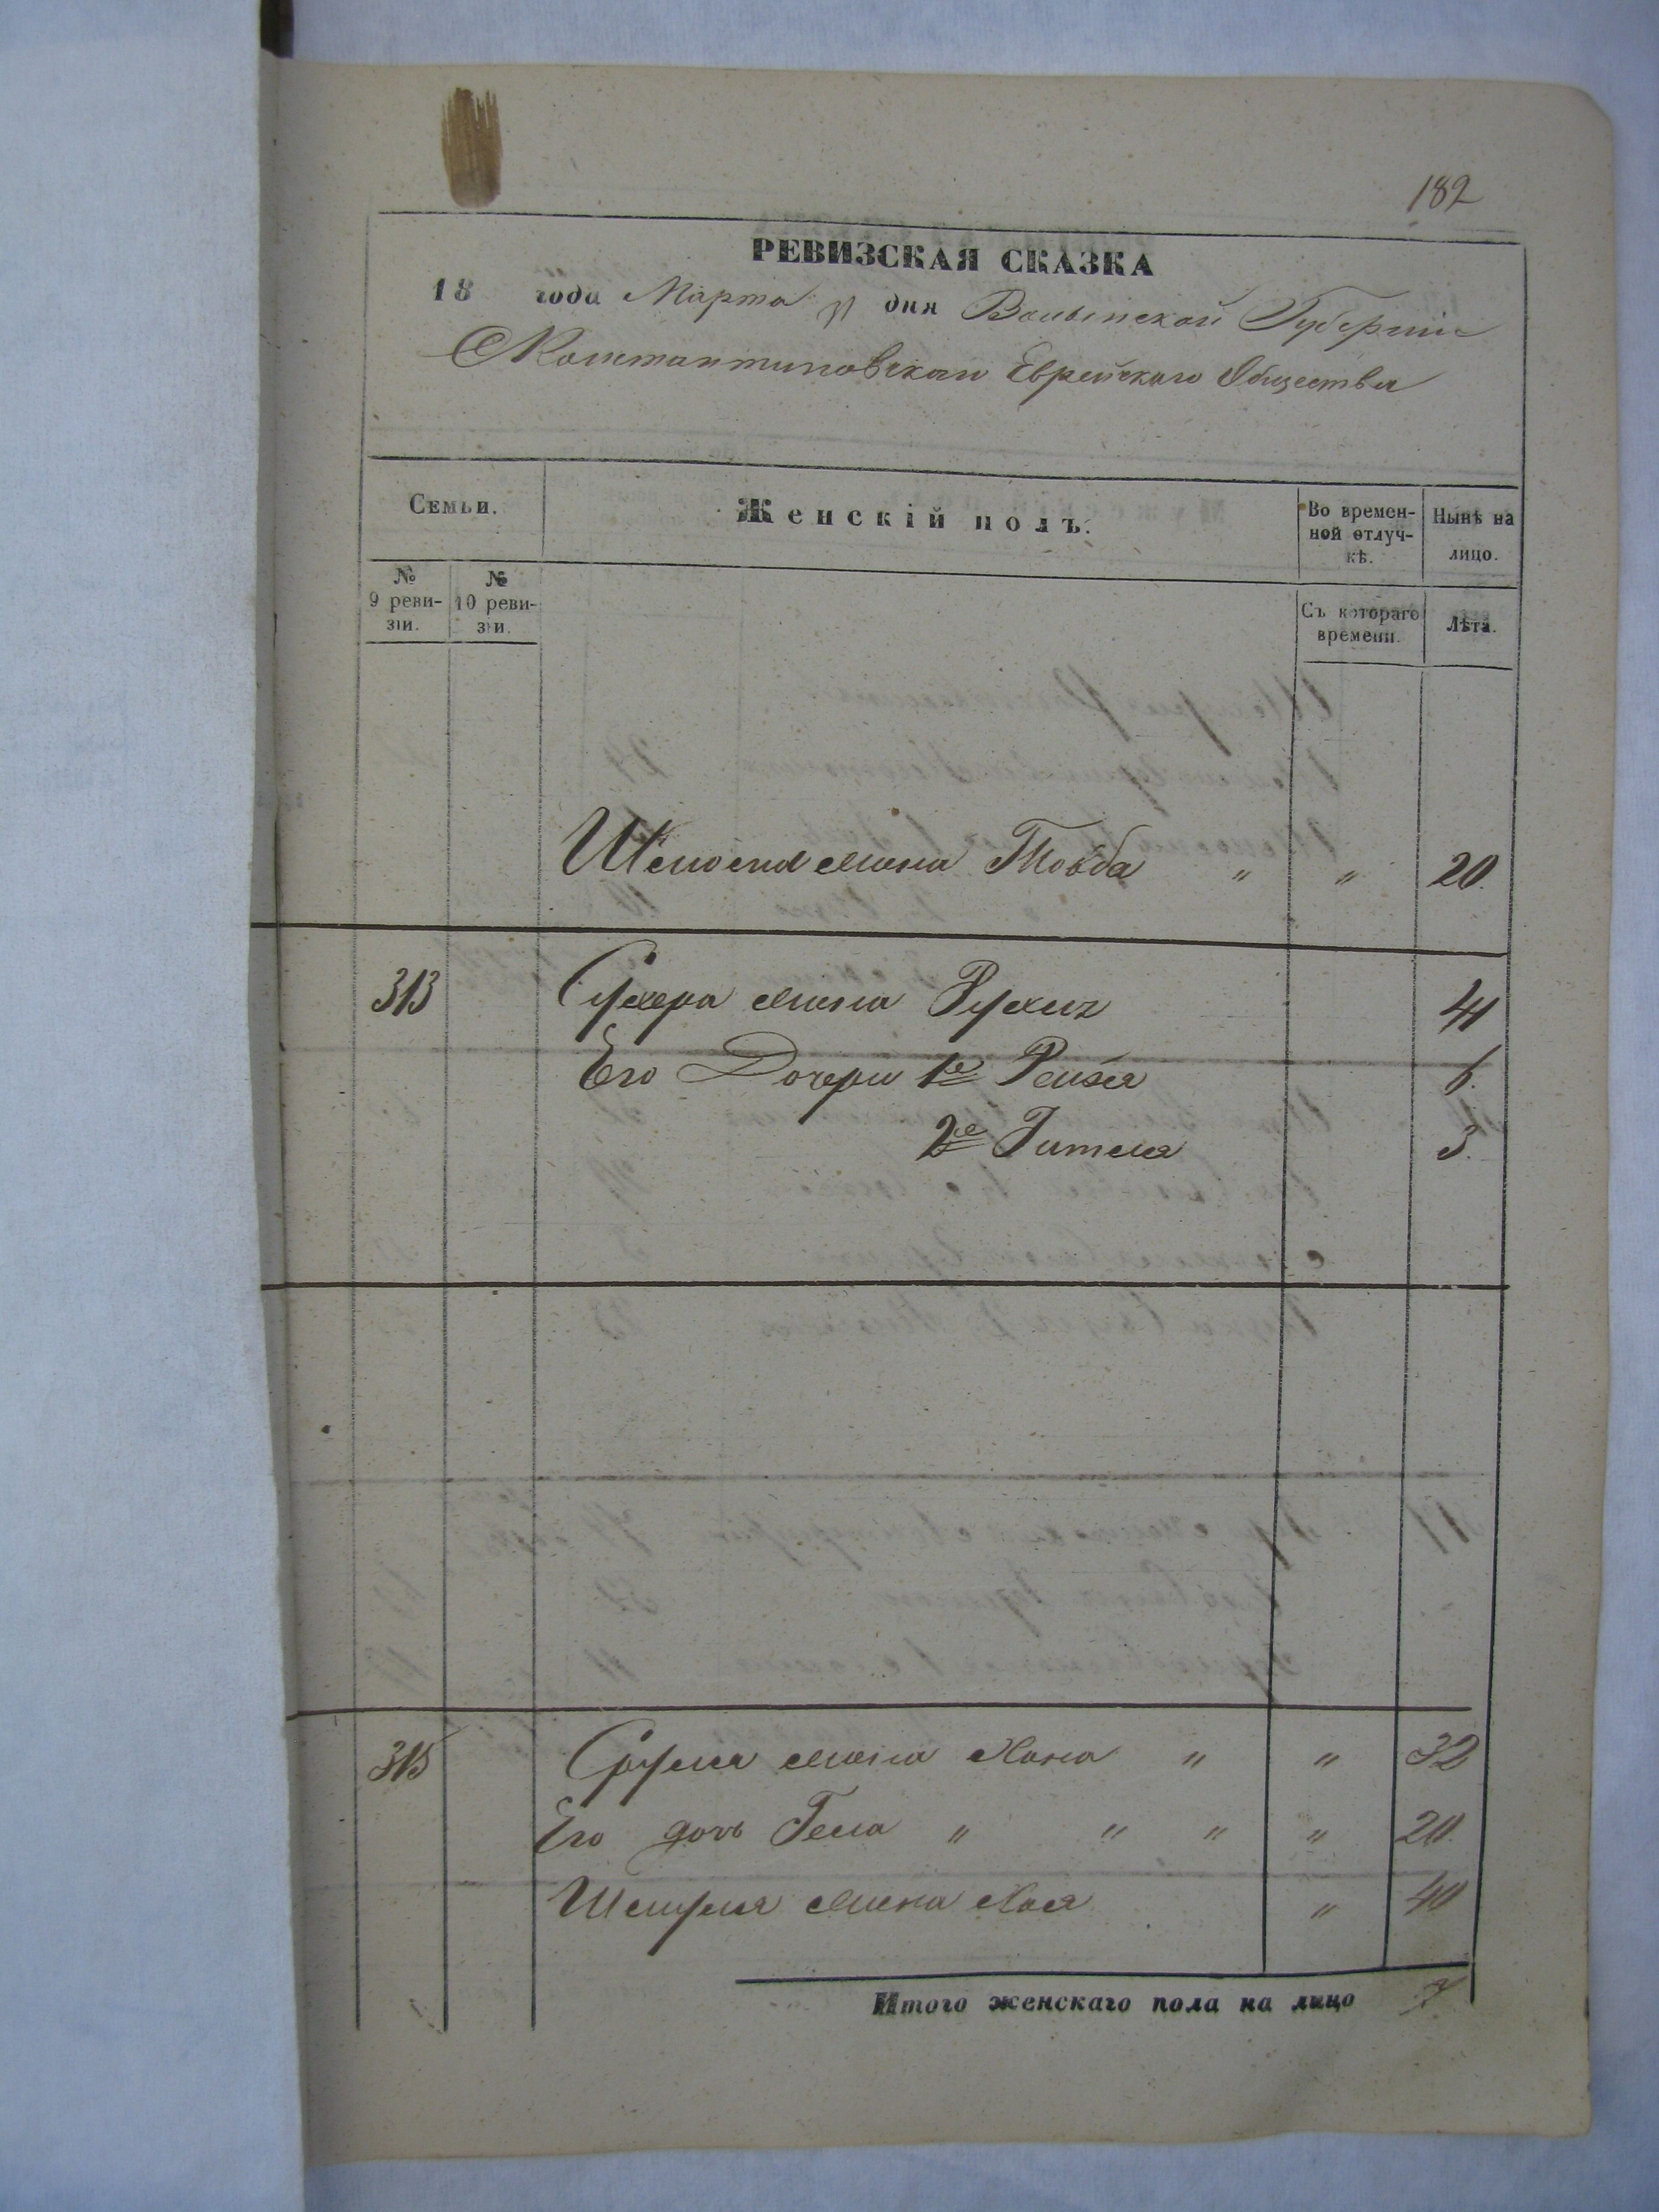 182
РЕВИЗСКАЯ СКАЗКА
18 года Марта 31 дня Волынской Губерніи
Константиновскаго Еврейскаго Общества
Семьи.
Женскій полъ.
Во времен-
ной отлуч-
кѣ.
Нынѣ на
лицо.
№
9 реви-
зіи.
№
10 реви-
зіи.
Съ котораго
времени.
Лѣта.
жена Товба " " 20.
313 Сухера жена Рухля 41
Его Дочери 1я Рейзя 6.
2я Гителя 3.
315 Сруля жена Хана " " 32
Его дочь Геля " " " " 20.
Шмуля жена Хая " 40
Итого женскаго пола на лицо 7